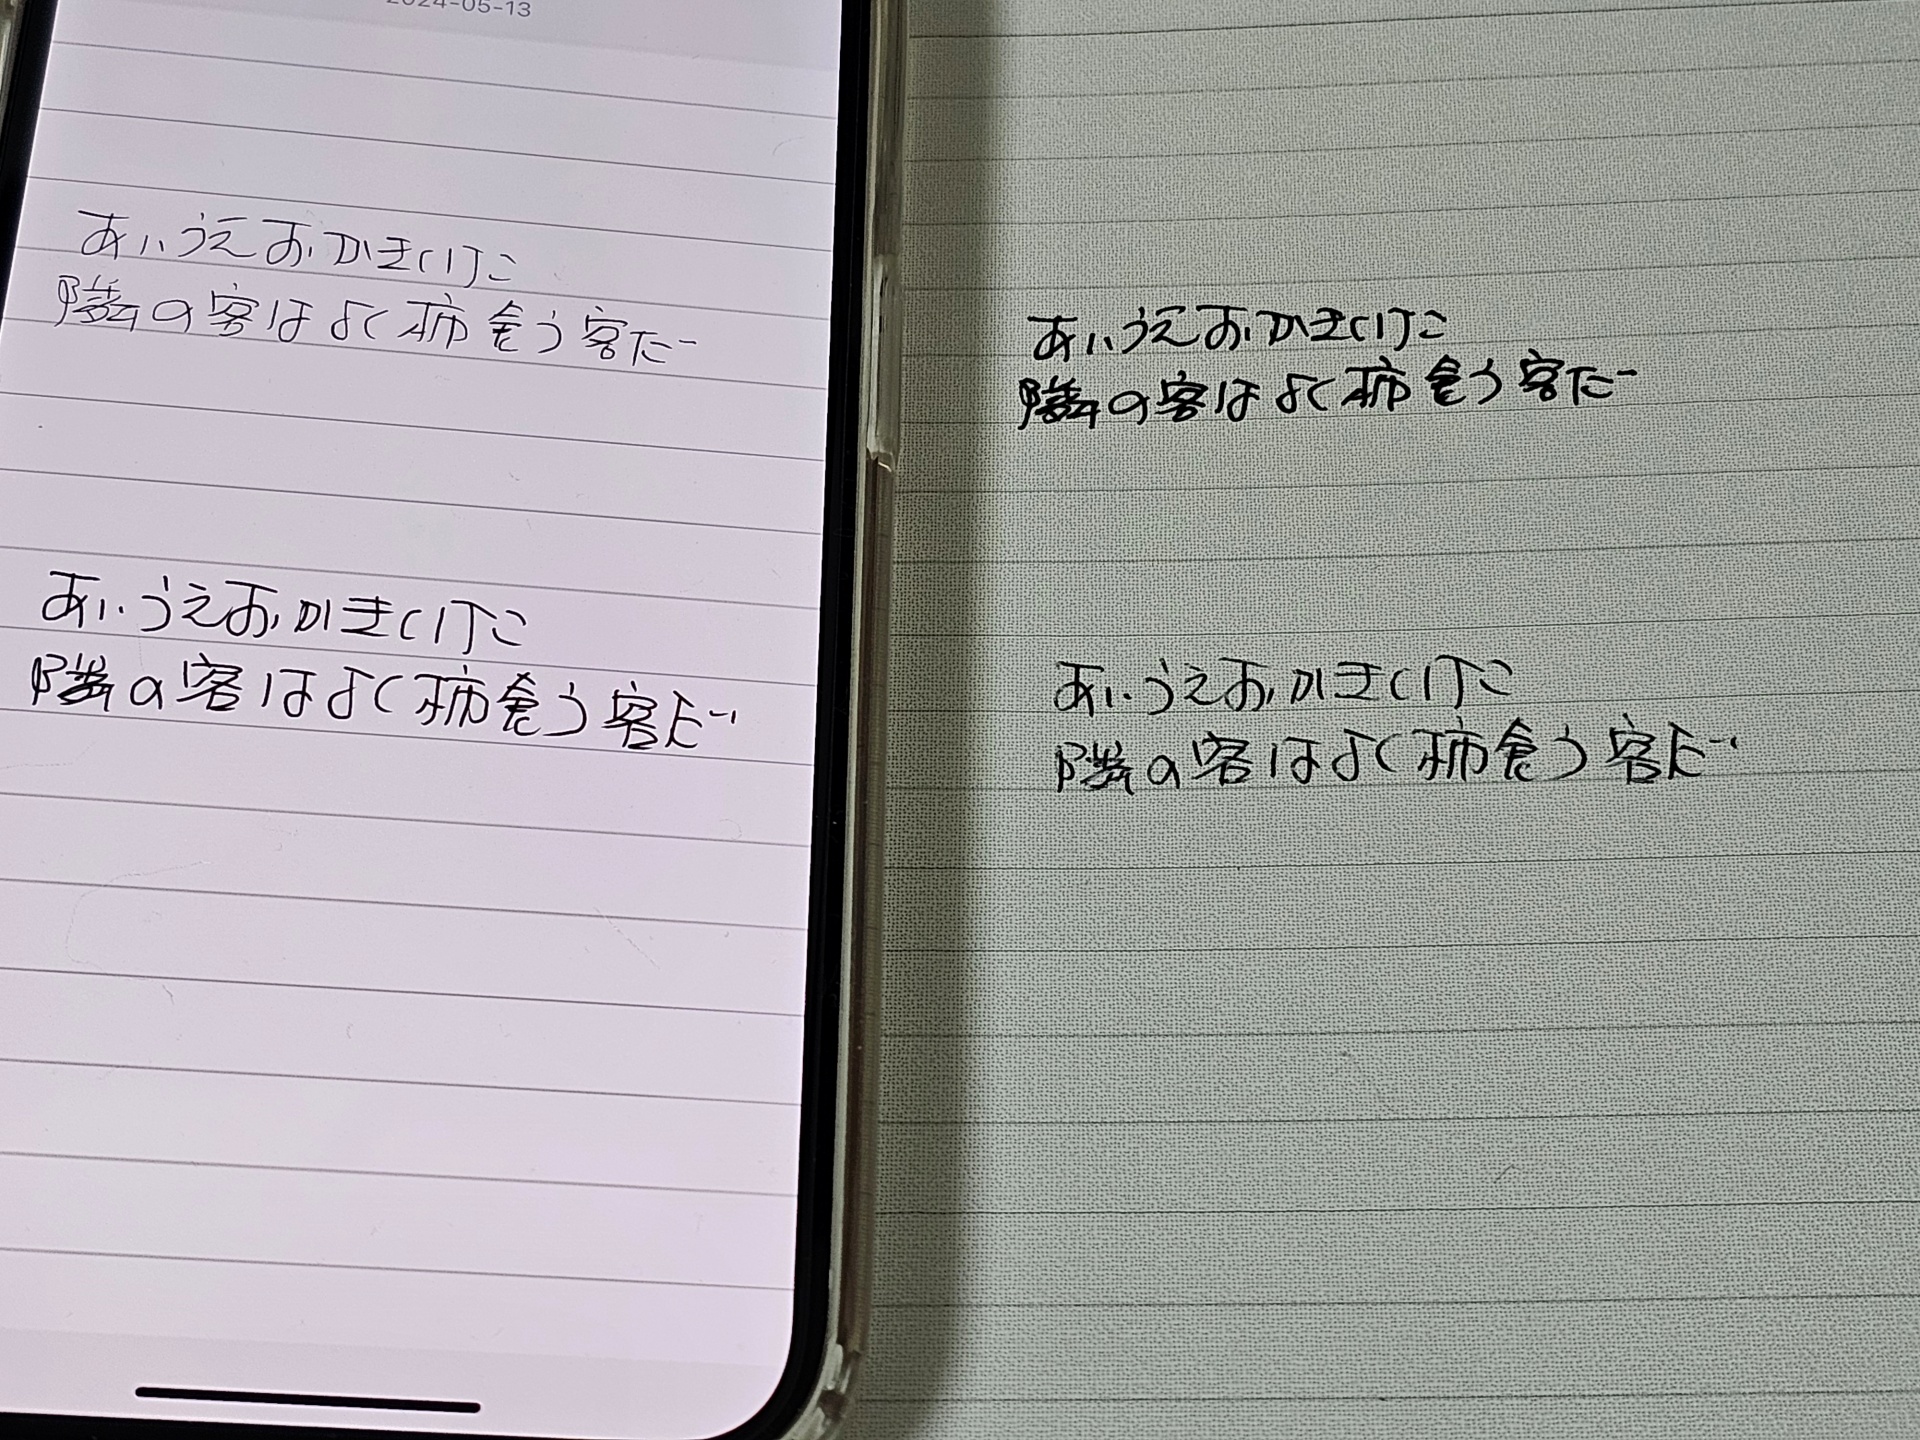 2024-05-13
あいうえおかきくけこ
隣の客はよく柿食う客だ
あいうえおかきくけこ
隣の客はよく柿食う客だ
あいうえおかきくけこ
隣の客はよく柿食う客だ
あいうえおかきくけこ
隣の客はよく柿食う客だ